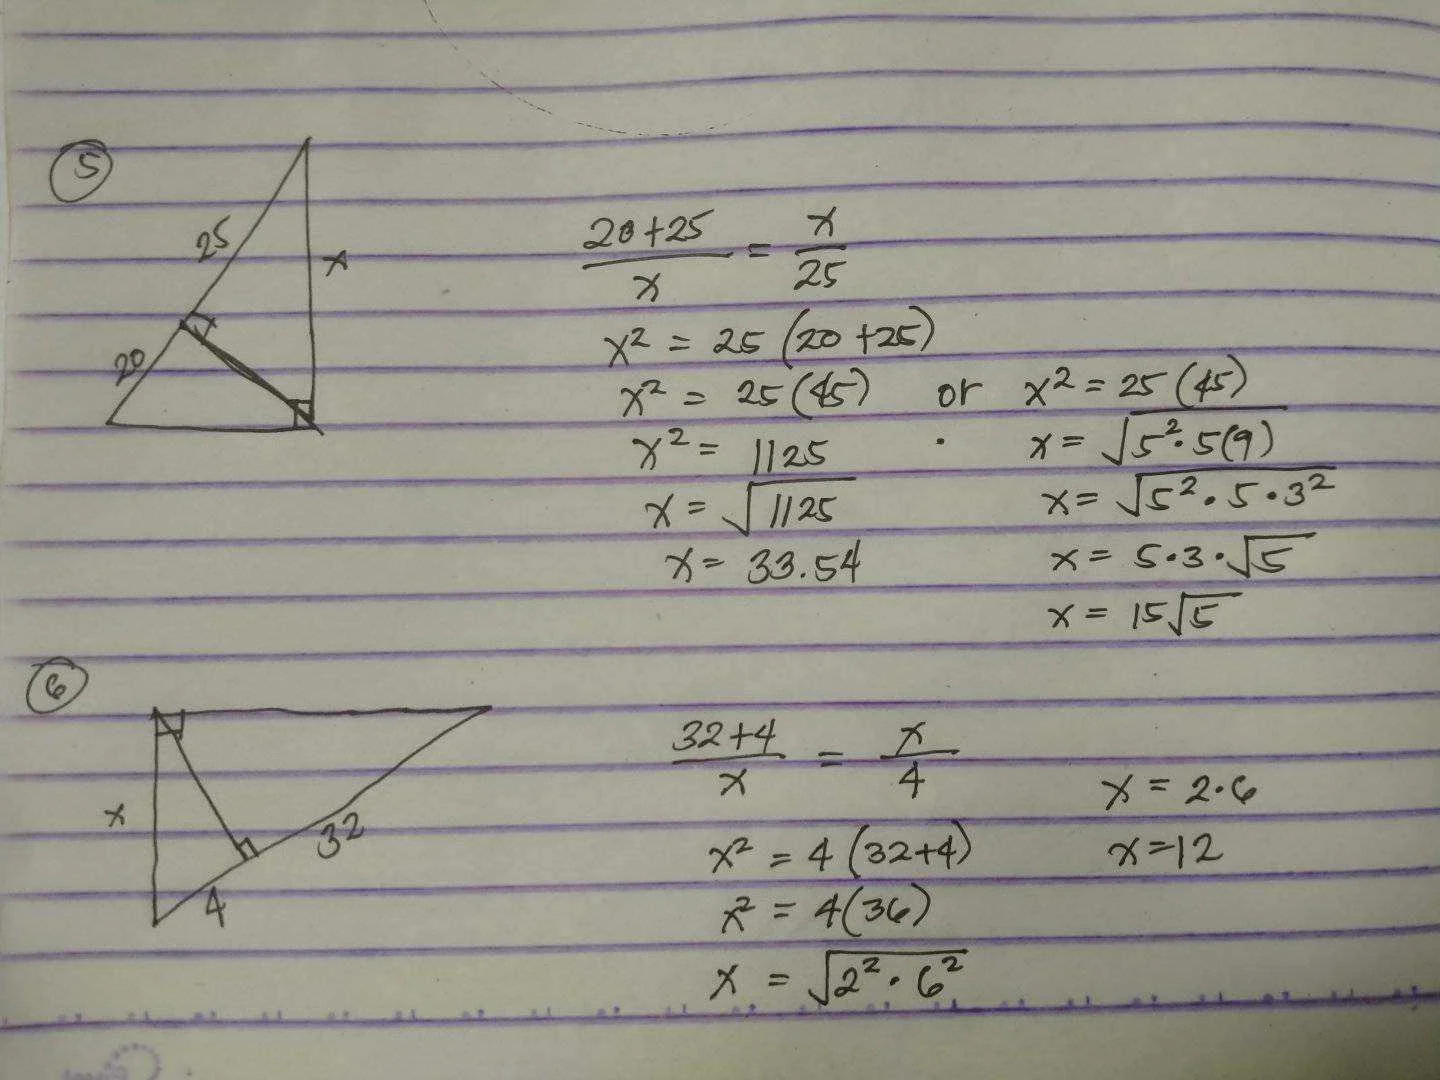 5
25
x
20
20+25/x = x/25
x² = 25(20+25)
x² = 25(45) or x² = 25(45)
x² = 1125
x = √5²·5(9)
x = √1125
x = √5²·5·3²
x = 33.54
x = 5·3·√5
x = 15√5
6
x
32
4
32+4/x = x/4
x² = 4(32+4)
x² = 4(36)
x = √2²·6²
x = 2·6
x=12